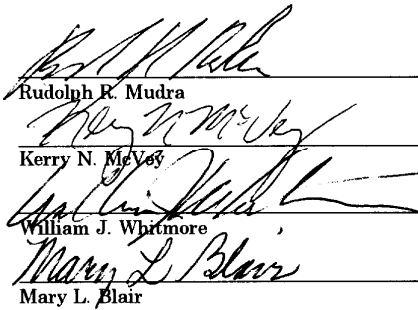 Rudolph R. Mudra
Kerry N. McVey
Kerry N. McVey
William J. Whitmore
Mary L Blair
Mary L. Blair